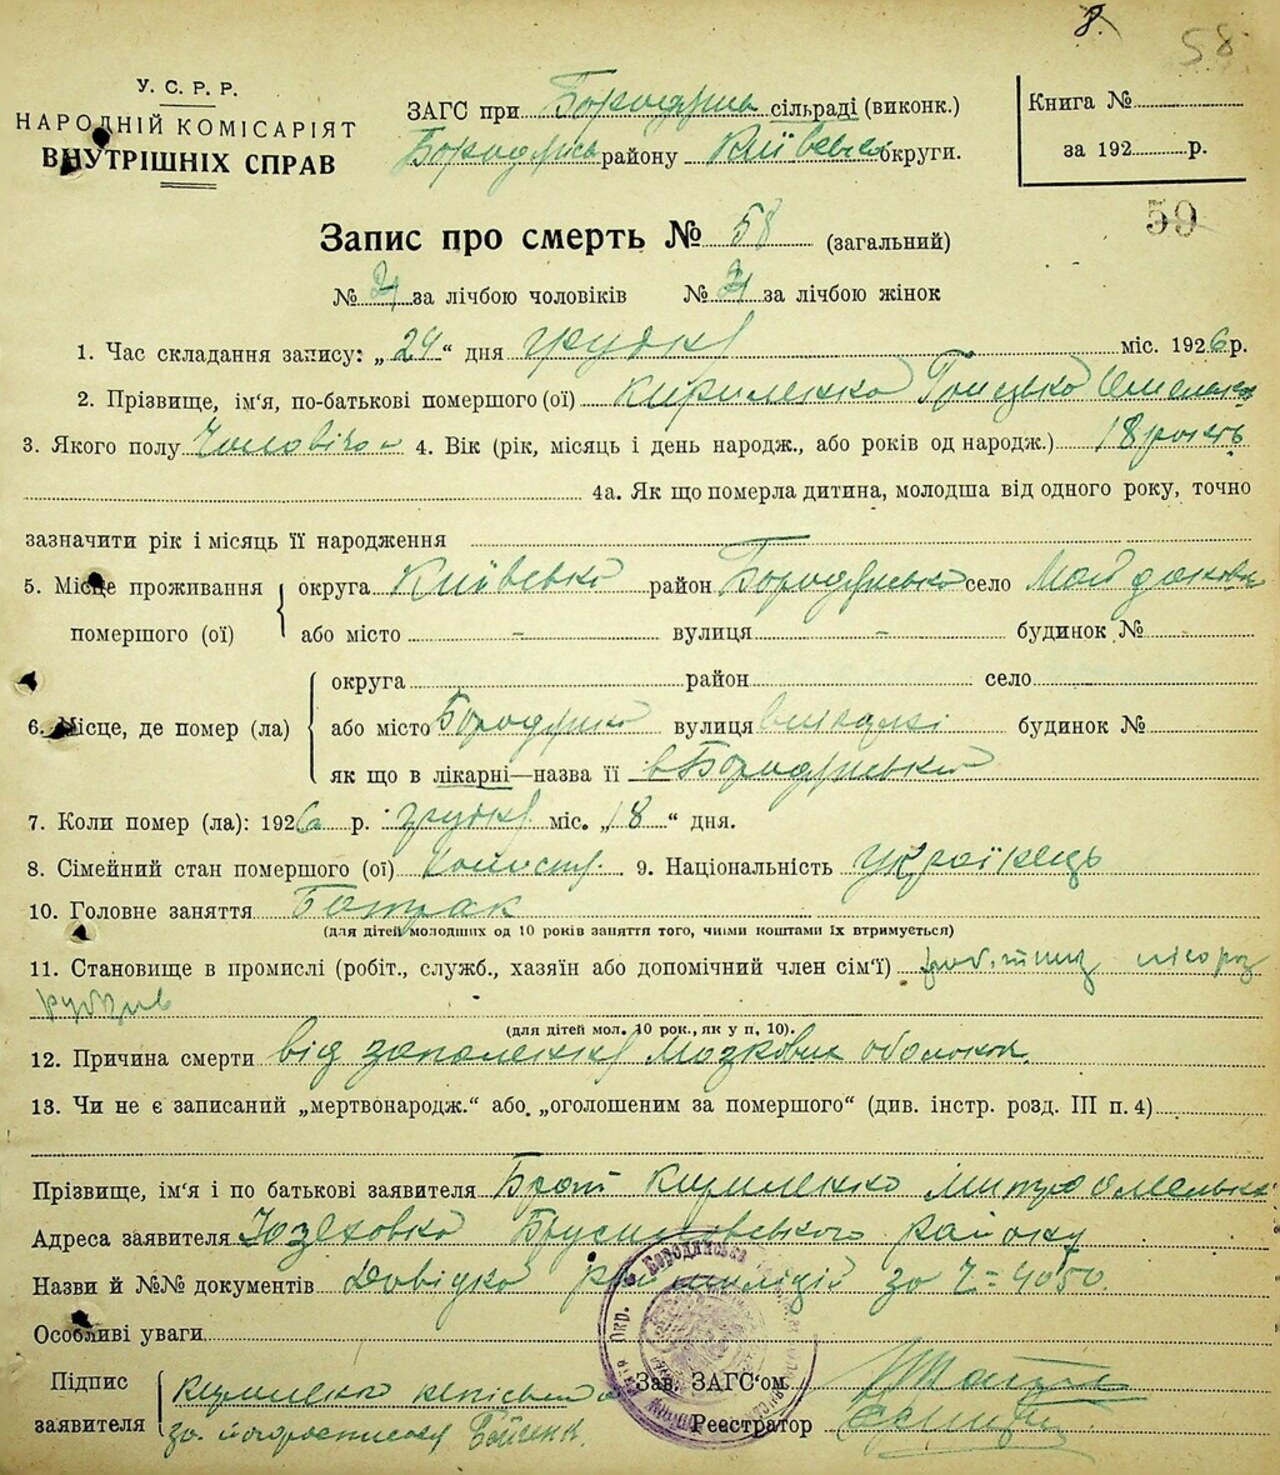 8.
58
У. С. Р. Р.
НАРОДНІЙ КОМІСАРІЯТ
ВНУТРІШНІХ СПРАВ
ЗАГС при сільраді (виконк.)
району округи.
Книга №
за 192 р.
59
Запис про смерть № 58 (загальний)
№ за лічбою чоловіків № за лічбою жінок
1. Час складання запису: „24“ дня грудня міс. 1926 р.
2. Прізвище, ім'я, по-батькові помершого (ої) Кириленко Грицько
3. Якого полу 4. Вік (рік, місяць і день народж., або років од народж.) 18 років
4а. Як що померла дитина, молодша від одного року, точно
зазначити рік і місяць її народження
5. Місце проживання помершого (ої) округа Київська район Бородянсько село
або місто - вулиця - будинок № -
6. Місце, де помер (ла) округа район село
або місто Бородянка вулиця будинок №
як що в лікарні—назва її в Бородянській
7. Коли помер (ла): 1926 р. грудня міс. „18“ дня.
8. Сімейний стан помершого (ої) 9. Національність Українець
10. Головне заняття Батрак
(для дітей молодших од 10 років заняття того, чиїми коштами їх втримується)
11. Становище в промислі (робіт., служб., хазяїн або допомічний член сім'ї)
(для дітей мол. 10 рок., як у п, 10).
12. Причина смерти від запалення мозкових оболонок
13. Чи не є записаний „мертвонародж.“ або „оголошеним за помершого“ (див. інстр. розд. III п. 4)
Прізвище, ім'я і по батькові заявителя Брат Кириленко
Адреса заявителя Брусилівського району
Назви й №№ документів Довідка за Ч= 4050
Особливі уваги
Підпис заявителя Кириленко
Зав. ЗАГС'ом
Реєстратор